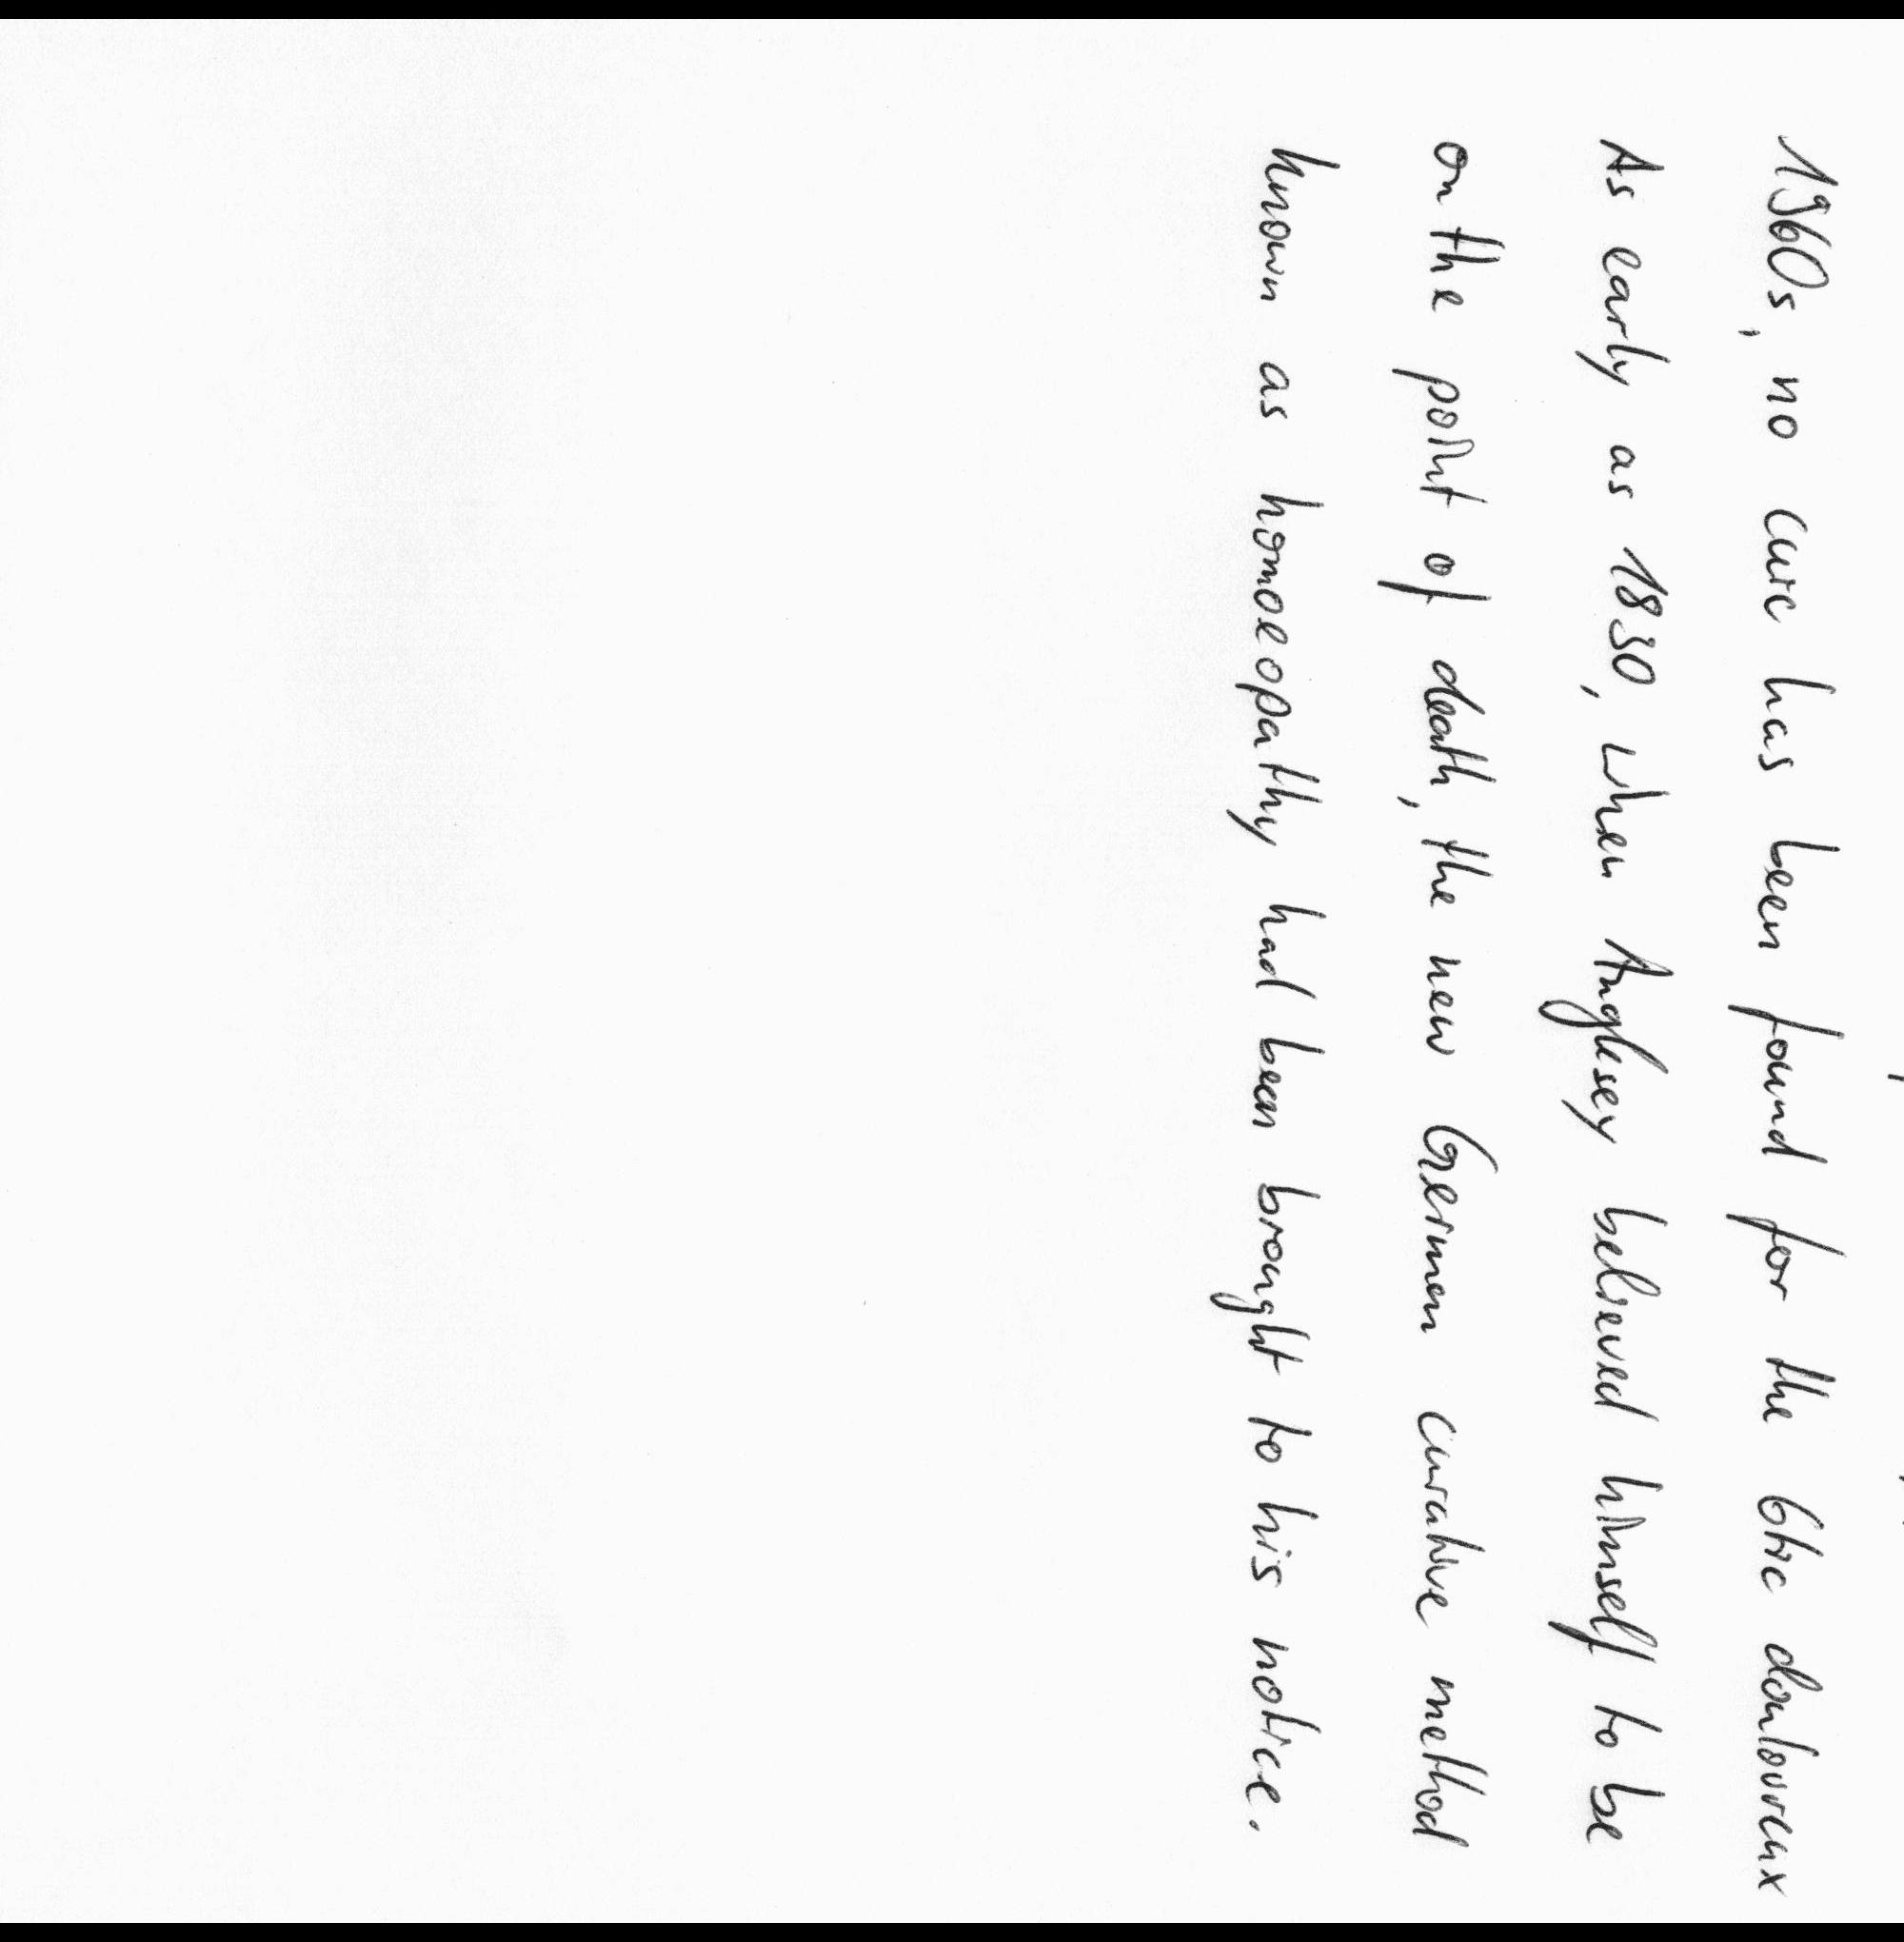 1960s, no cure has been found for the tic douloureux
As early as 1830, when Anglesey believed himself to be
on the point of death, the new German curative method
known as homoeopathy had been brought to his notice.